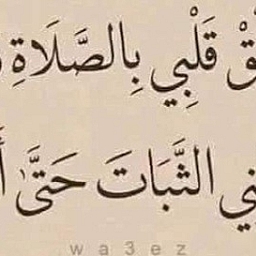 قْ قَلْبِي بِالصَّلَاةِ
ني الثَّبَاتَ حَتَّىٰ أَ
wa3ez